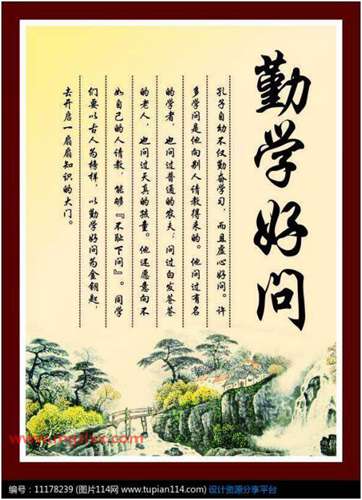 勤学好问
孔子自幼不仅勤奋学习，而且虚心好问。许
多学问是他向别人请教得来的。他问过有名
的学者，也问过普通的农夫；问过白发苍苍
的老人，也问过天真的孩童。他还愿意向不
如自己的人请教，能够『不耻下问』。同学
们要以古人为榜样，以勤学好问为金钥匙，
去开启一扇扇知识的大门。
编号：11178239 (图片114网 www.tupian114.com) 设计资源分享平台